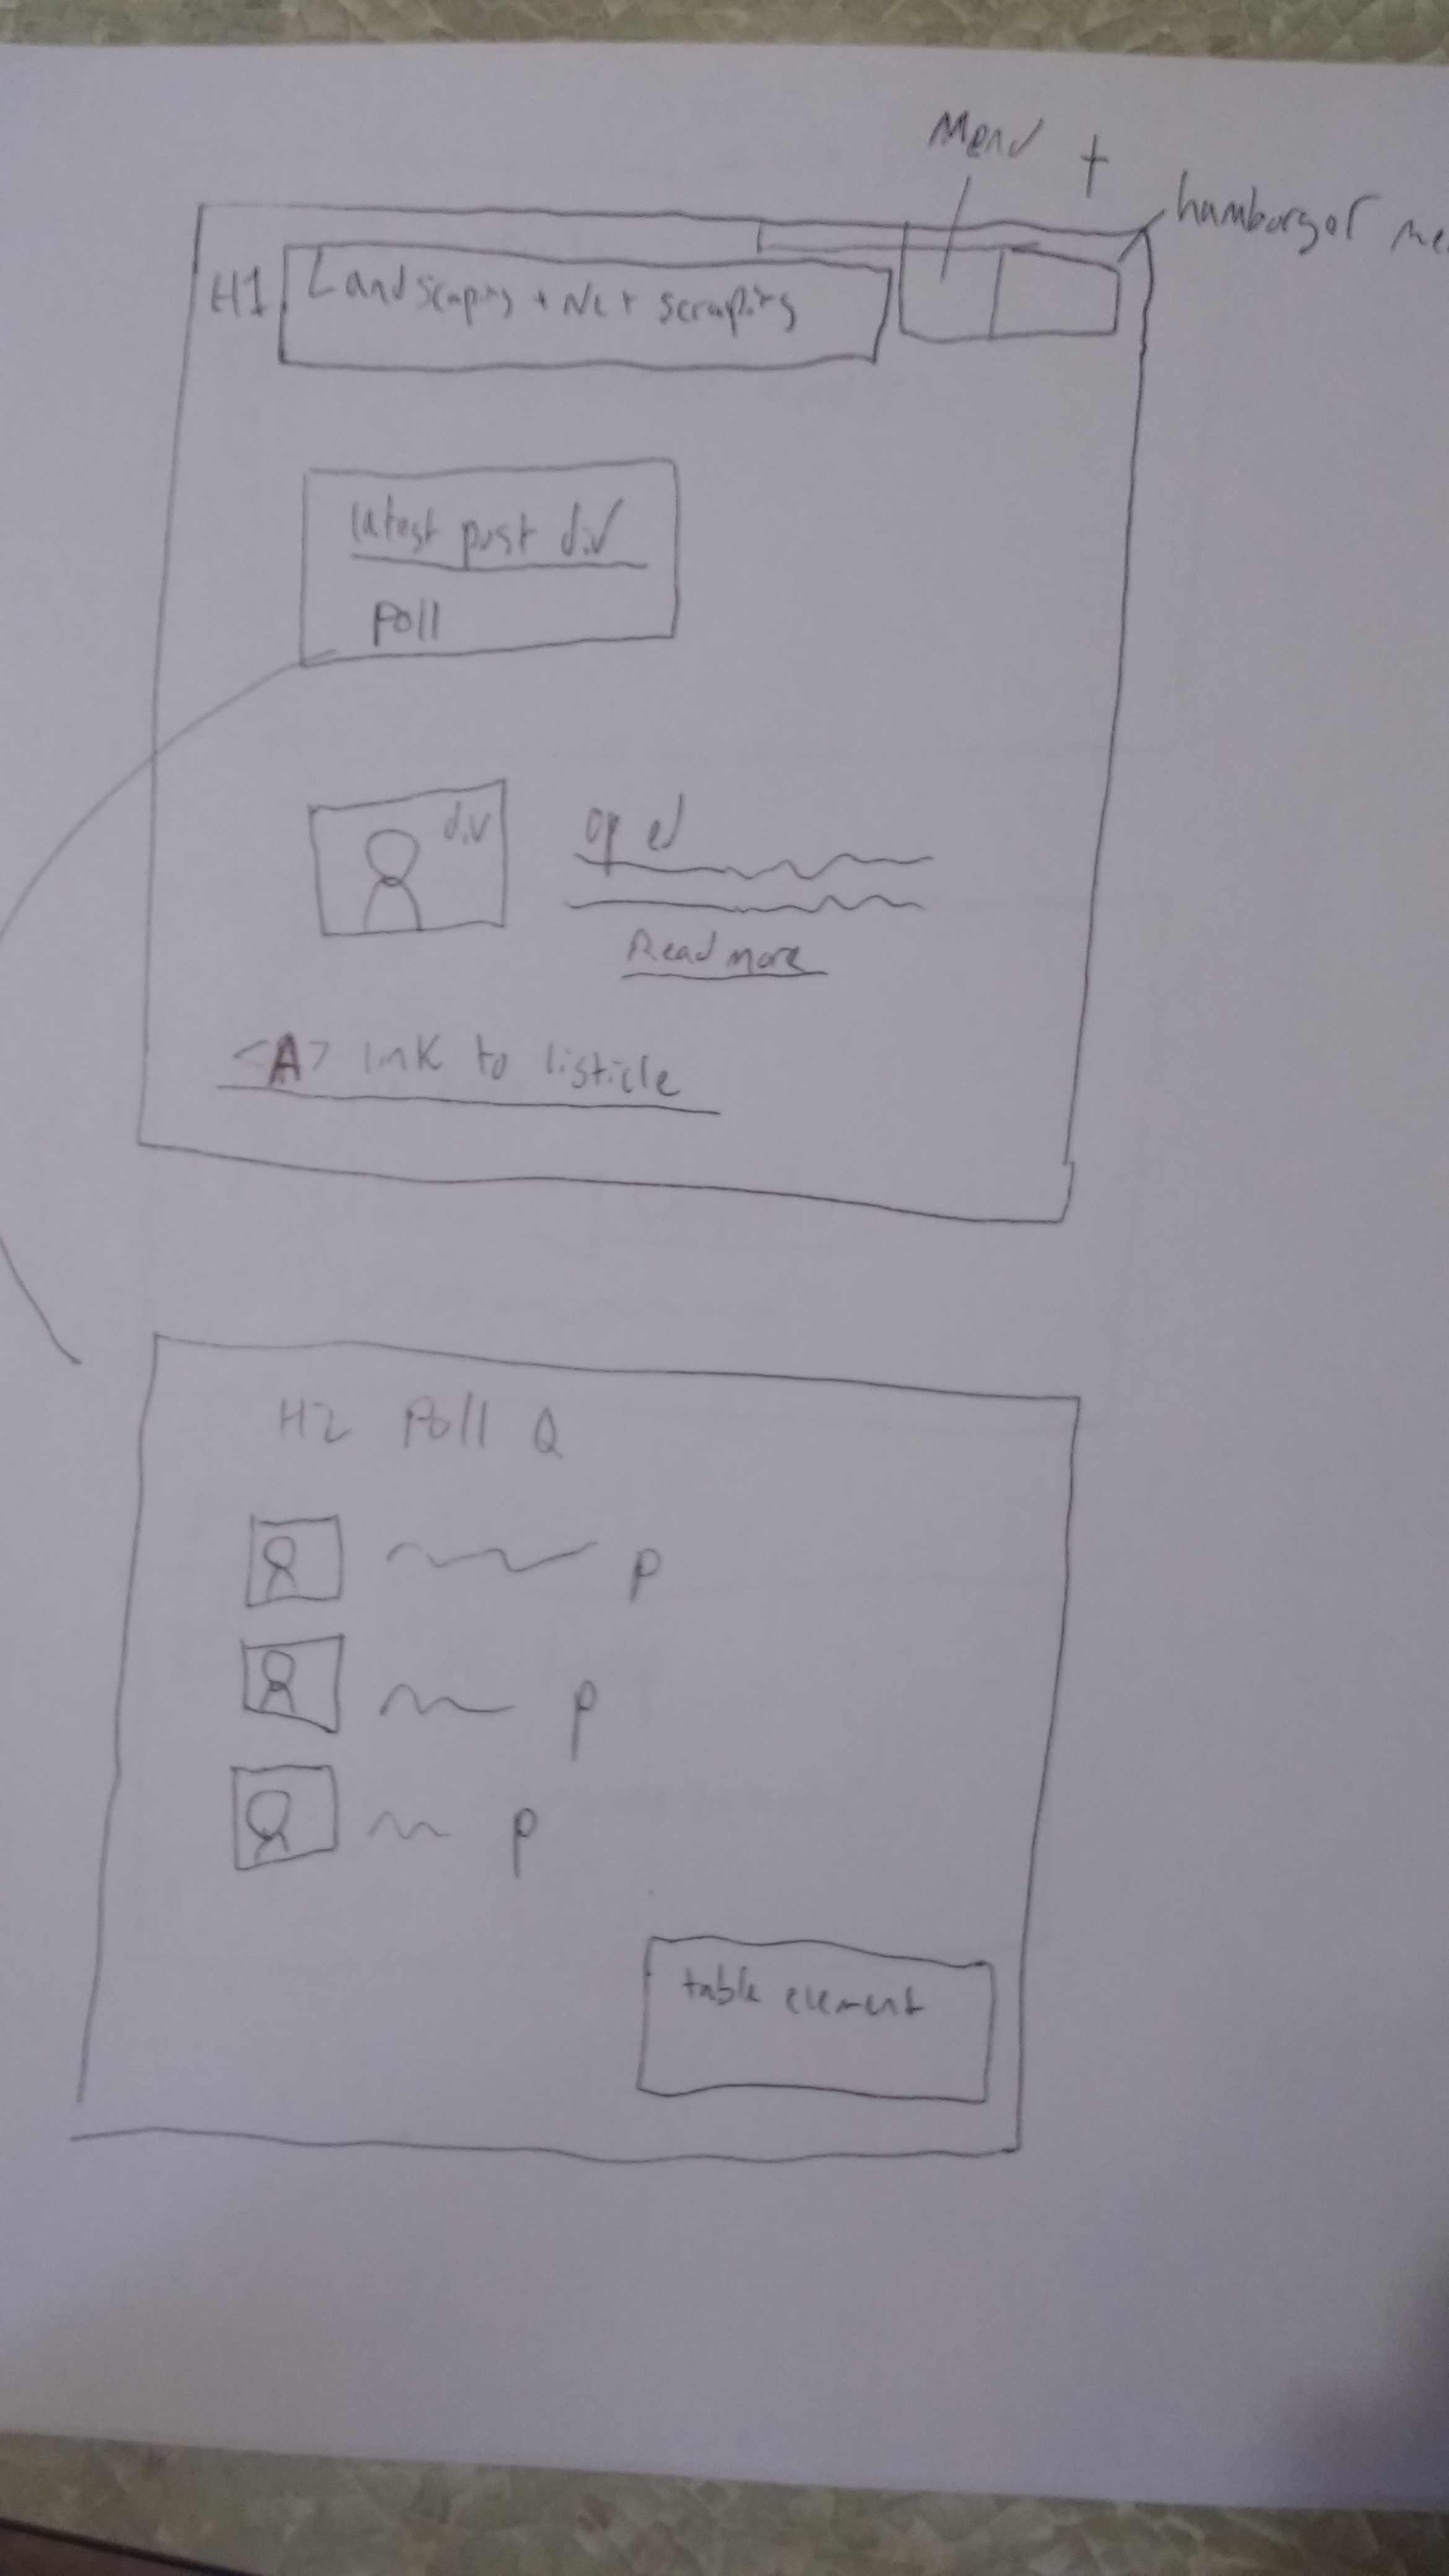 Menu +
hamburger me
H1 Landscaping + Net scraping
latest post div
Poll
div
op ed
Read more
<A> link to listicle
H2 Poll Q
p
p
p
table element